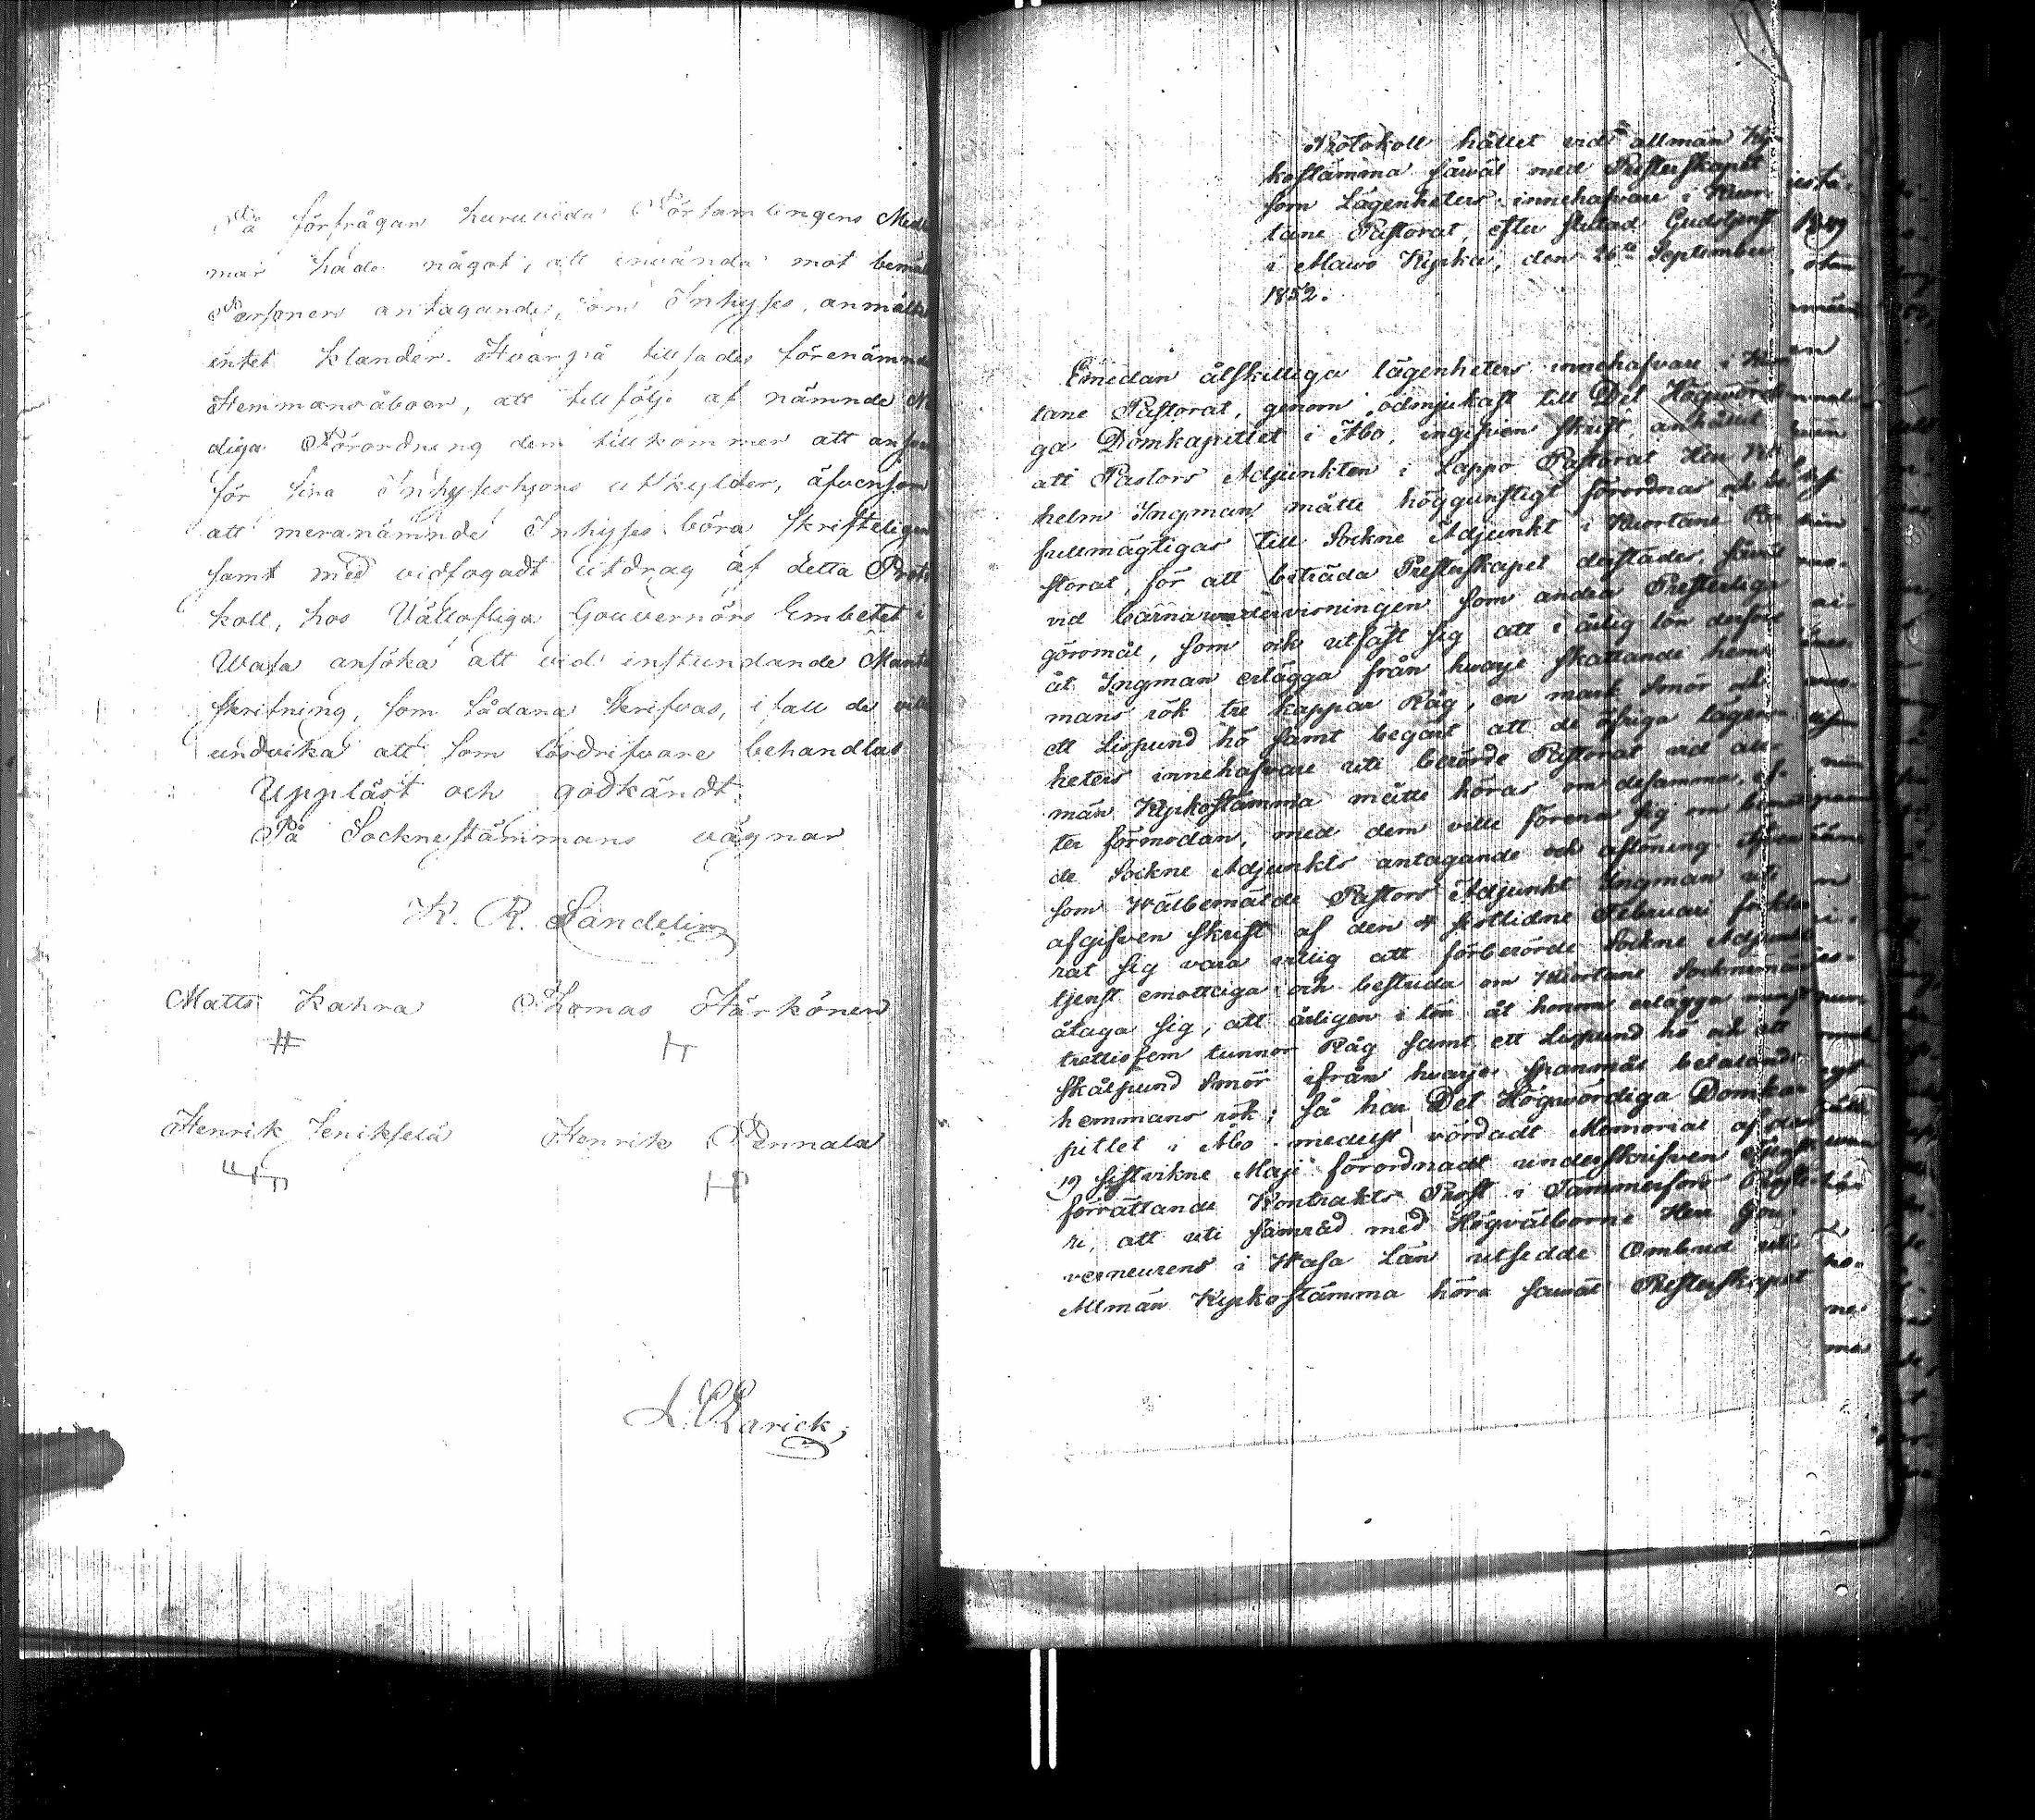 På förfrågan huruvida Församlingens Med
mar hade något, att invända mot bemäl
Personers antagande, som Inhyses, anmältes
intet klander. Hvarpå tillsades förenämnde
Hemmansåboer, att till följe af nämnde
diga Förordning dem tillkommer att ansva
för sina Inhyseshjons utskylder, äfvensom
att meranämnde Inhyses böra skrifteligen
samt med vidfogadt utdrag af detta Proto
koll, hos Vällofliga Gouvernörs Embetet i
Wasa ansöka att vid instundande Mantals
skrifning, som sådana skrifvas, i fall de vilja
undvika att som lösdrifvare behandlas
Uppläst och godkändt.
På Socknestämmans vägnar
K. R. Sandelin
Matts Kahra Thomas Härkönen
Henrik Jenikselä Henrik Pennala
Protokoll hållet vid allmän Kyr
kostämma såväl med Presterskapet
som Lägenheters innehafvare i Kuor
tane Pastorat, efter slutad Gudstjenst
i Alawo Kyrka, den 26te September
1852.
Emedan åtskilliga lägenheters innehafvare i Kuor
tane Pastorat, genom ödmjukast till Det Högwördi
ga Domkapitlet i Åbo, ingifven skrift, anhållit
att Pastors Adjunkten i Lappo Pastorat Herr Wil
helm Ingman måtte höggunstigt förordnas och be
fullmägtigas till Sockne Adjunkt i Kuortane Pa
storat, för att biträda Presterskapet derstädes, såväl
vid barnaundervisningen som andra Presterliga
göromål, som ock utfäst sig att i årlig lön derför
åt Ingman erlägga från hwarje skattande hem
mans rök tre kappar Råg, en mark Smör och
ett Lispund hö samt begärt att de öfriga lägen
heters innehafvare uti berörde Pastorat vid all
män Kyrkostämma måtte höras om desamma, ef
ter förmodan, med dem ville förena sig om bemäl
de Sockne Adjunkts antagande och aflöning. Äfven
som Wälbemälde Pastors Adjunkt Ingman uti
afgifven skrift af den 4 sistlidne Februari förkla
rat sig vara villig att förberörde Sockne Adjunkts
tjenst emottaga och bestrida om Kuortane Socknemän
åtaga sig, att årligen i lön åt honom erlägga minst
trettiofem tunnor Råg samt ett Lispund hö och ett
skålpund Smör ifrån hwarje spanmål betalande
hemmans rök; så har Det Högwördiga Domka
pitlet i Åbo medelst vördadt Memorial af den
19 sistvikne Maji förordnadt underskrifven tjenst
förrättande Kontrakts Prost i Tammerfors Proste
ri, att uti samråd med Högvälborne Herr Gou
verneurens i Wasa Län utsedde Ombud uti
Allmän Kyrkostämma höra såwäl Presterskapet